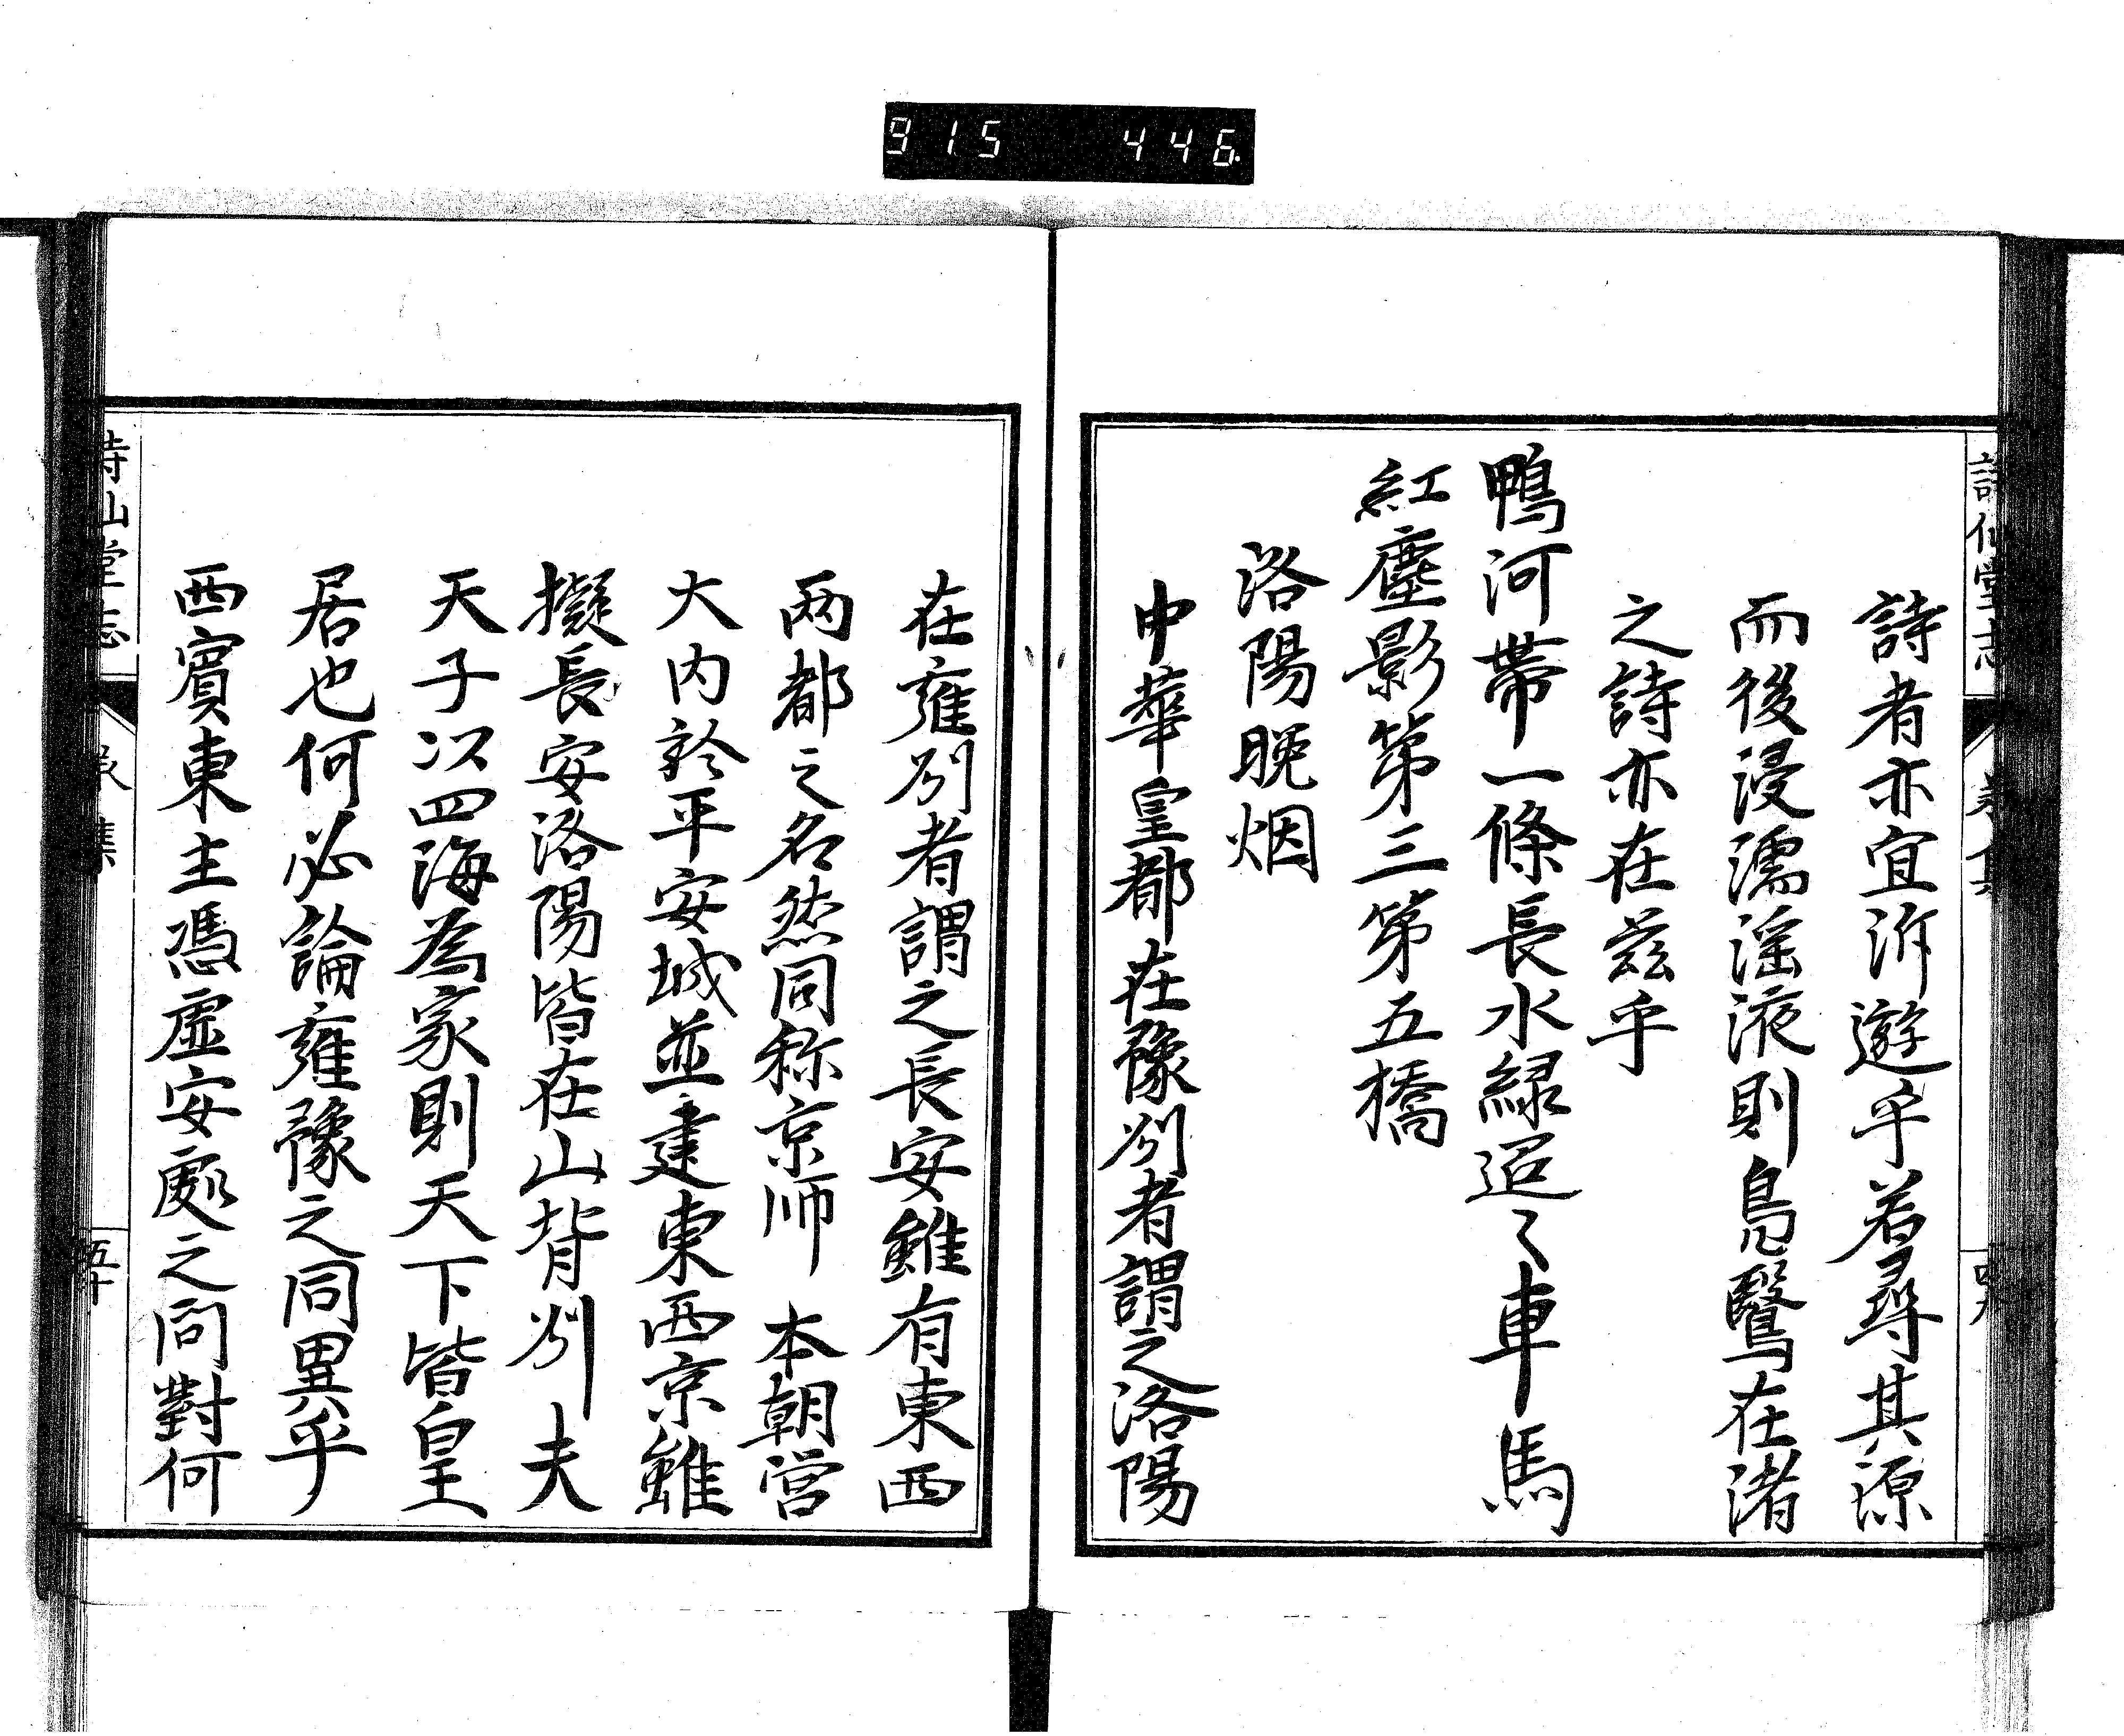 915 446
詩者亦宜泝遊乎若尋其源
而後浸濡滛液則鳧鷖在渚
之詩亦在茲乎
鴨河帶一條長水緑迢〻車馬
紅塵影第三第五橋
洛陽晩烟
中華皇都在豫州者謂之洛陽
在雍州者謂之長安雖有東西
両都之名然同称京师 本朝営
大内於平安城並建東西京雖
擬長安洛陽皆在山背州夫
天子以四海為家則天下皆皇
居也何必論雍豫之同異乎
西賓東主馮虚安處之問對何
五十